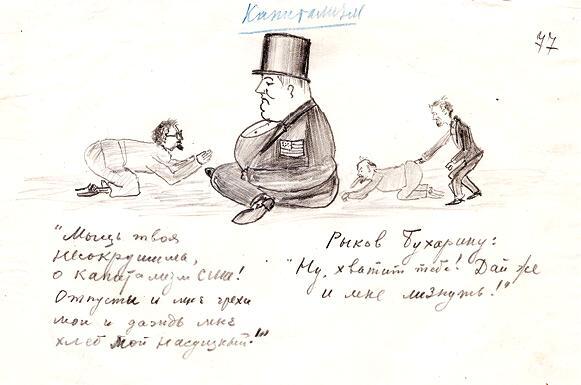 Капитализм
77
"Мыщь твоя
Несокрушима,
о капатализм США!
Отпусты и мне грехи
мои и даждь мне
хлеб мой насущный!"
Рыков Бухарину:
"Ну, хватит тебе! Дай же
и мне лизнуть!"